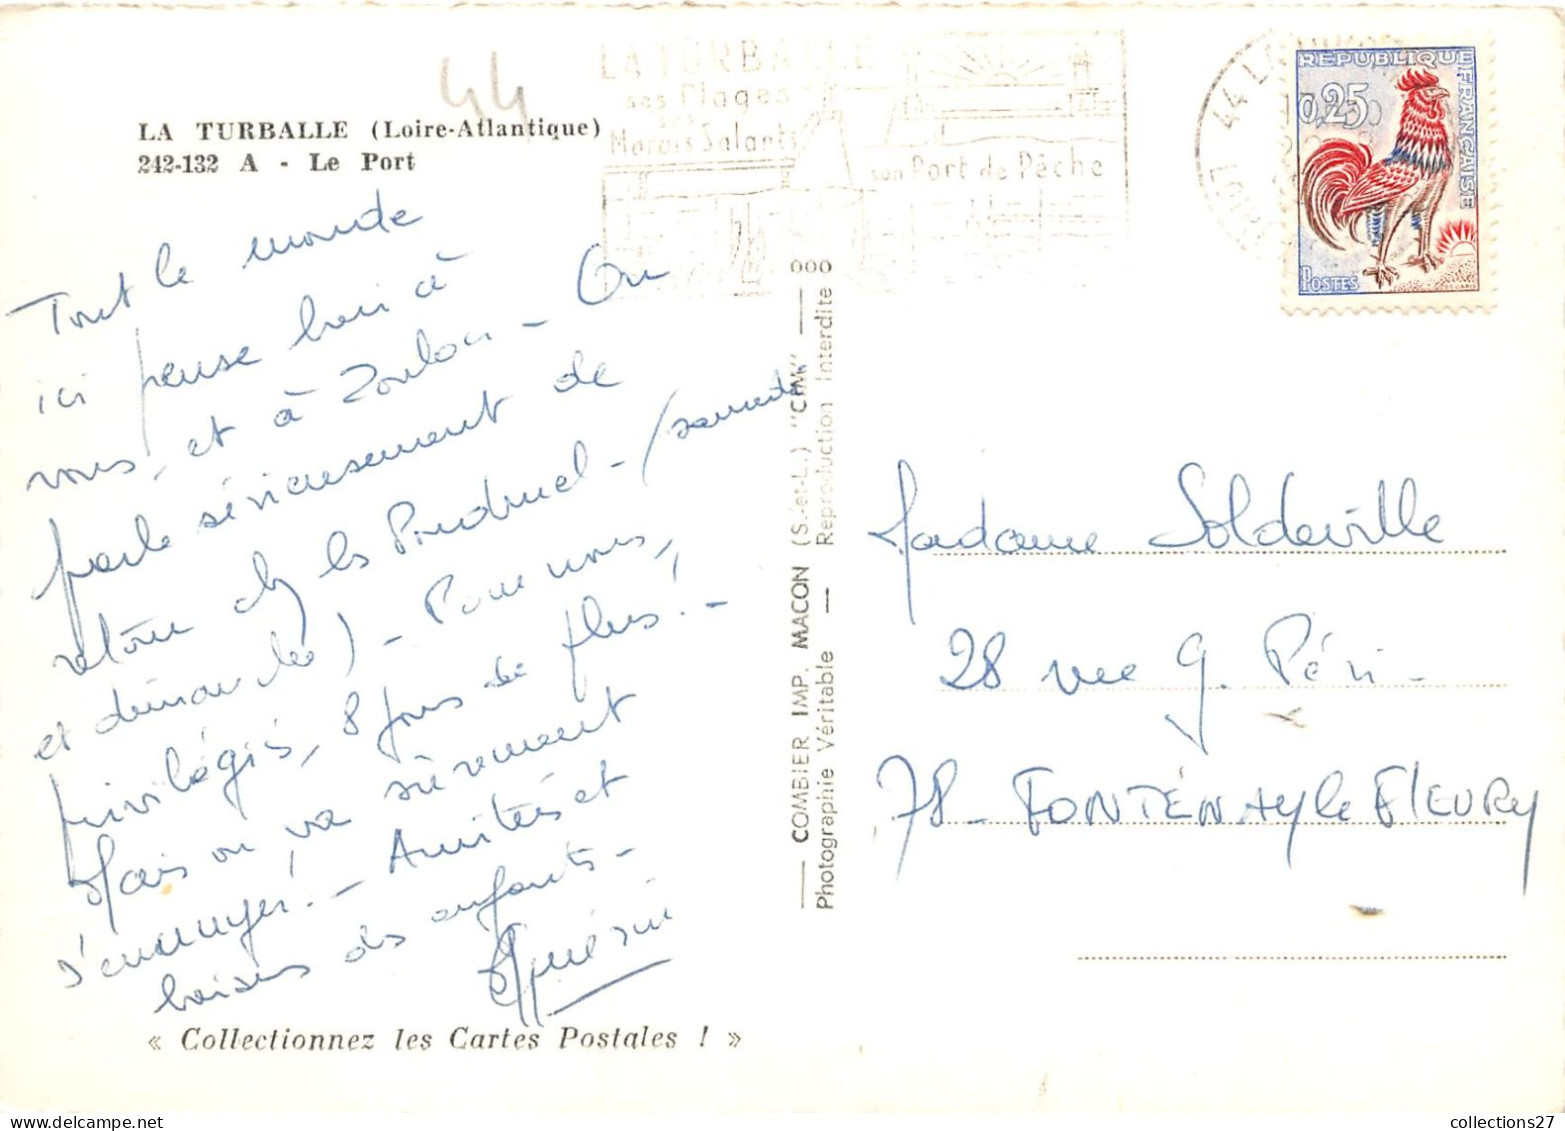 44
LA TURBALLE (Loire-Atlantique)
242-132 A - Le Port
Tout le monde
ici pense bien à
vous, et à Loulou - On
parle sérieusement de
retour chez les Prudruel - (samedi
et dimanche) - Pour nous,
privilégiés, 8 jours de plus! -
Mais on va sûrement
s'ennuyer. - Amitiés et
baisers des enfants -
Guérin
« Collectionnez les Cartes Postales ! »
COMBIER IMP. MACON (S.-et-L.) "CIM" — 000
Photographie Véritable — Reproduction Interdite
LA TURBALLE
ses Plages
ses
Marais Salants
son Port de Pêche
44 LA
REPUBLIQUE FRANÇAISE
0,25
POSTES
Madame Soldeville
28 rue G. Péri -
78 - FONTENAY le FLEURY
collections27